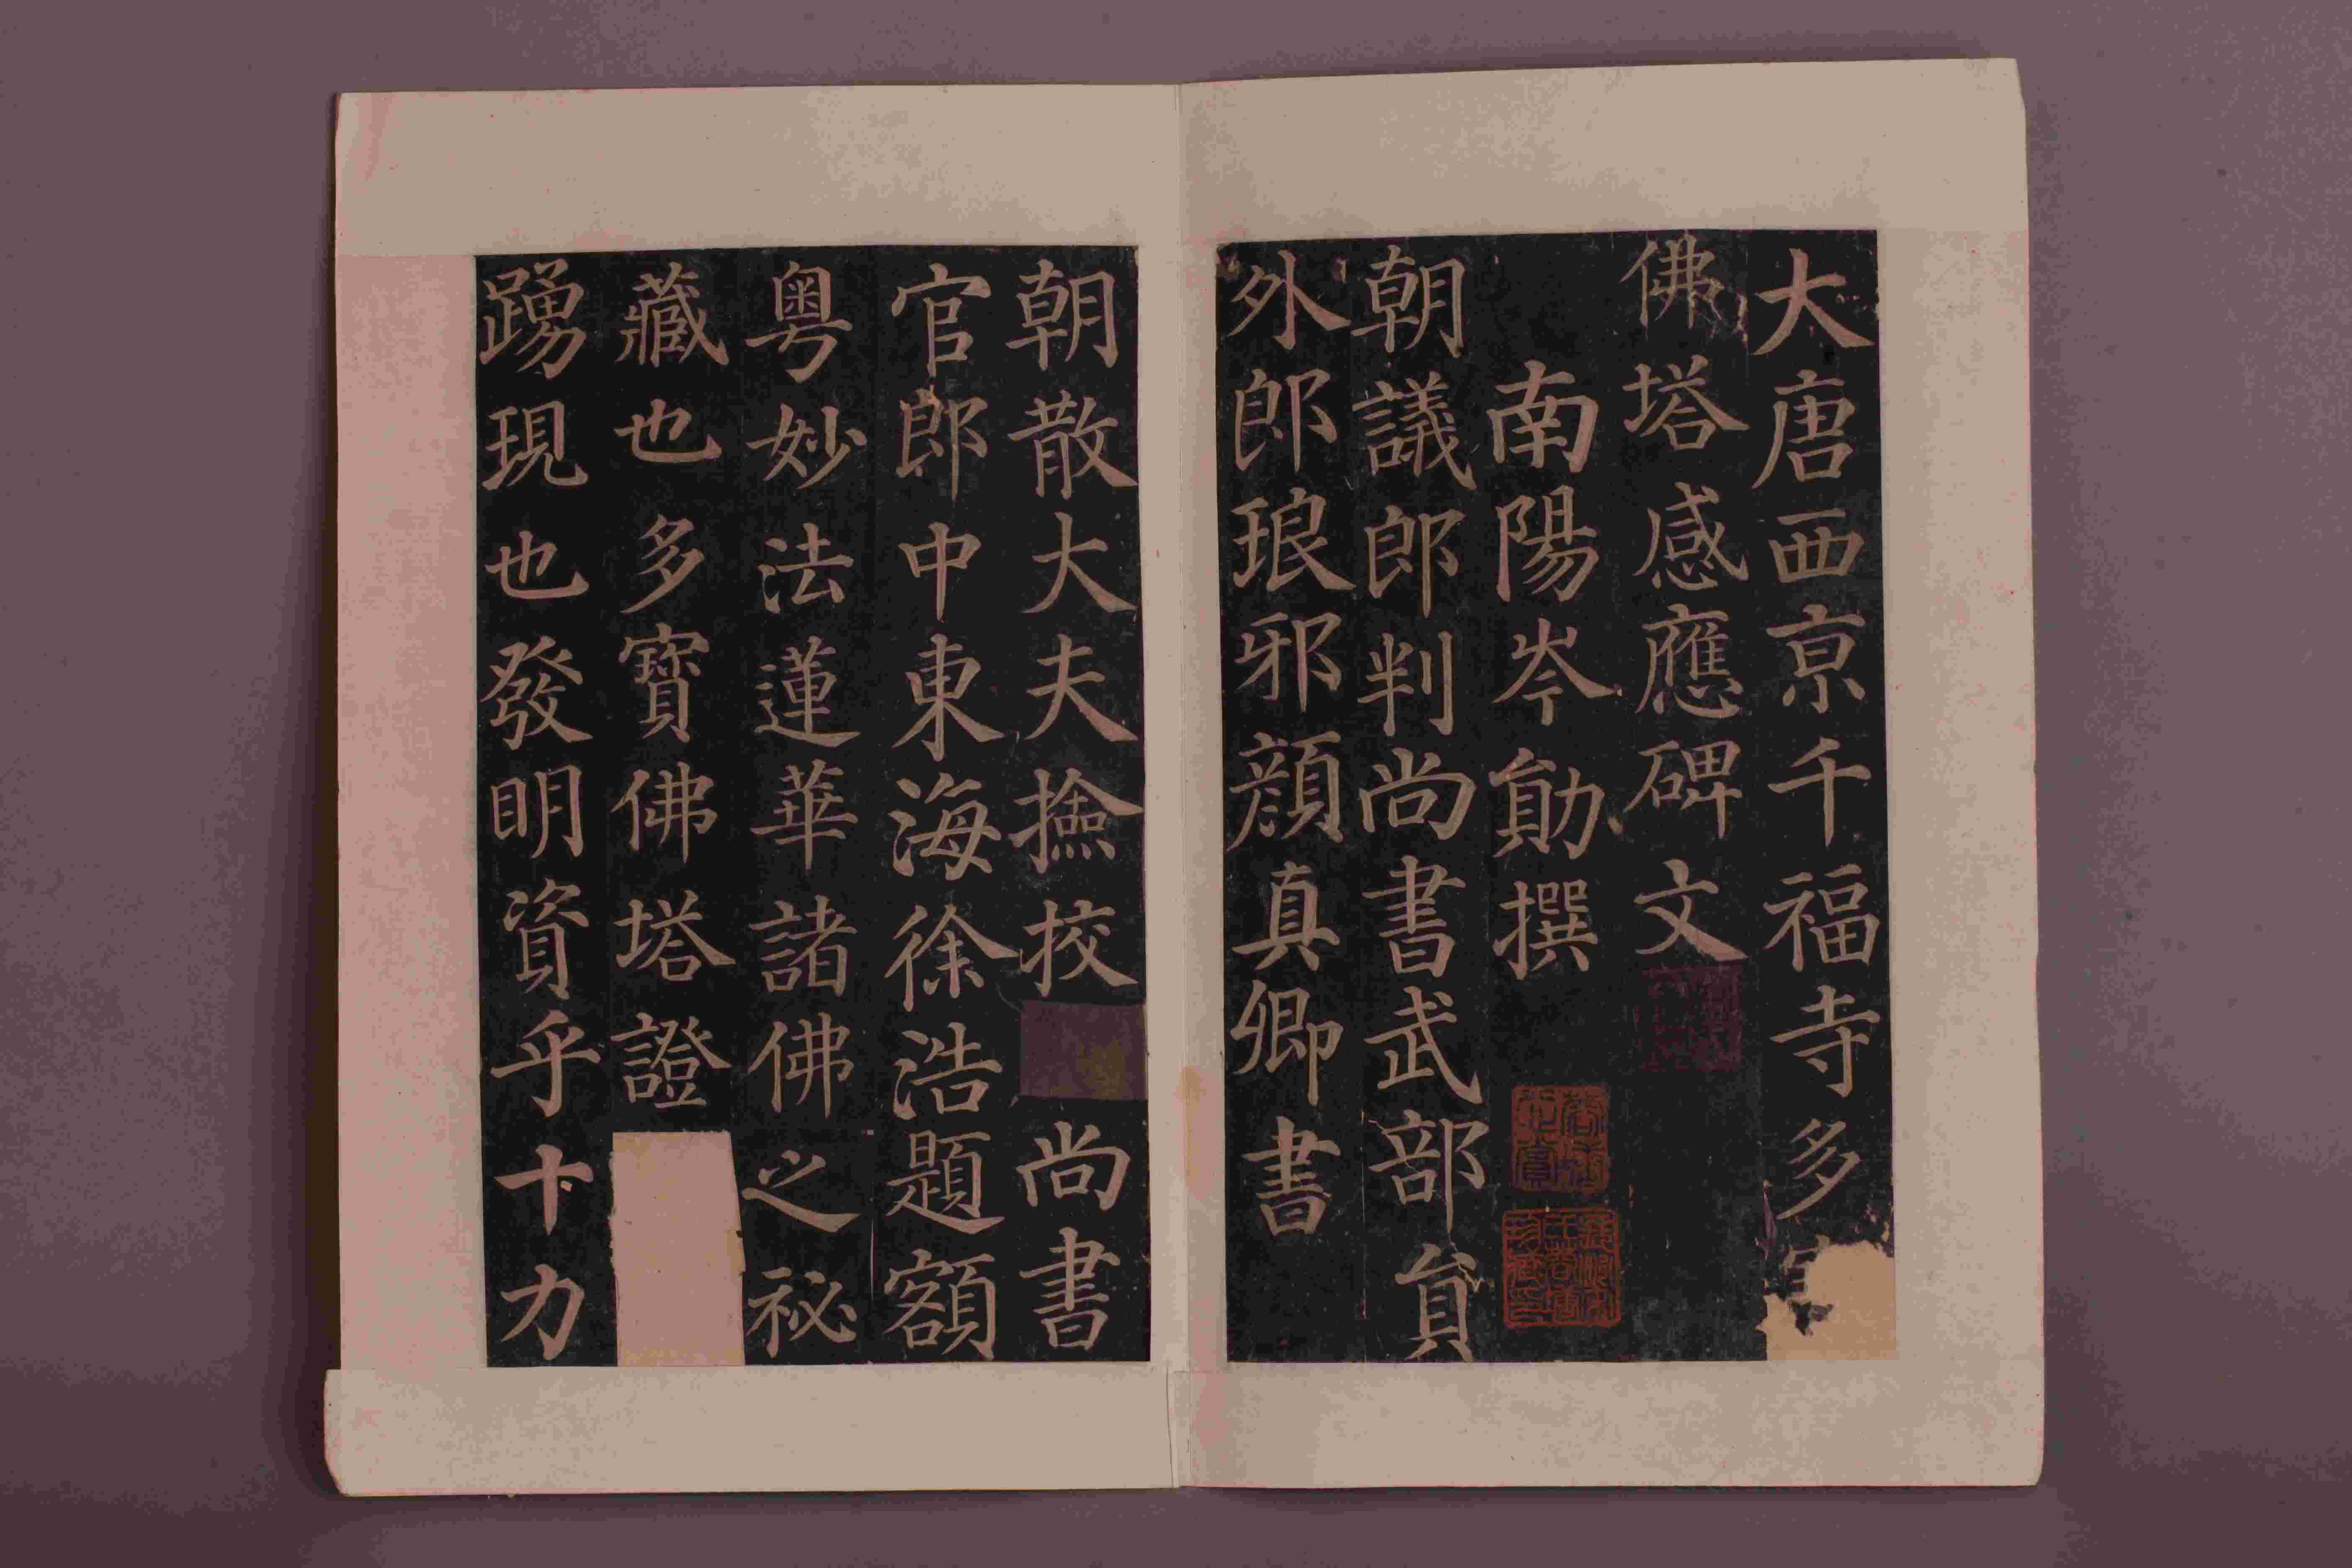 大唐西京千福寺多
佛塔感應碑文
南陽岑勛撰
朝議郎判尚書武部員
外郎琅邪顏真卿書
朝散大夫撿挍
尚書
官郎中東海徐浩題額
粵妙法蓮華諸佛之祕
藏也多寶佛塔證
踴現也發明資乎十力